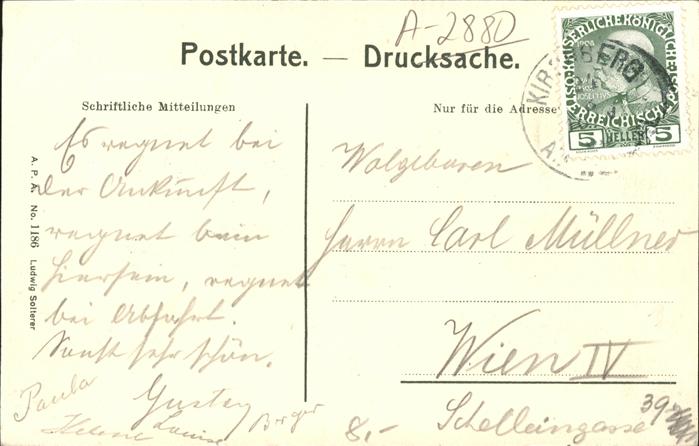 A-2880
Postkarte. — Drucksache.
Schriftliche Mitteilungen
Es regnet bei
der Ankunft,
regnet beim
Hiersein, regnet
bei Abfahrt.
Sonst sehr schön.
Paula
Gustav
Helene Louise Berger
A. P. A. No. 1186 Ludwig Solterer
Nur für die Adresse
Wolgeboren
Herrn Carl Müllner
Wien IV
Schelleingasse 39
8,-
KIRCHBERG A
1908
5 HELLER 5